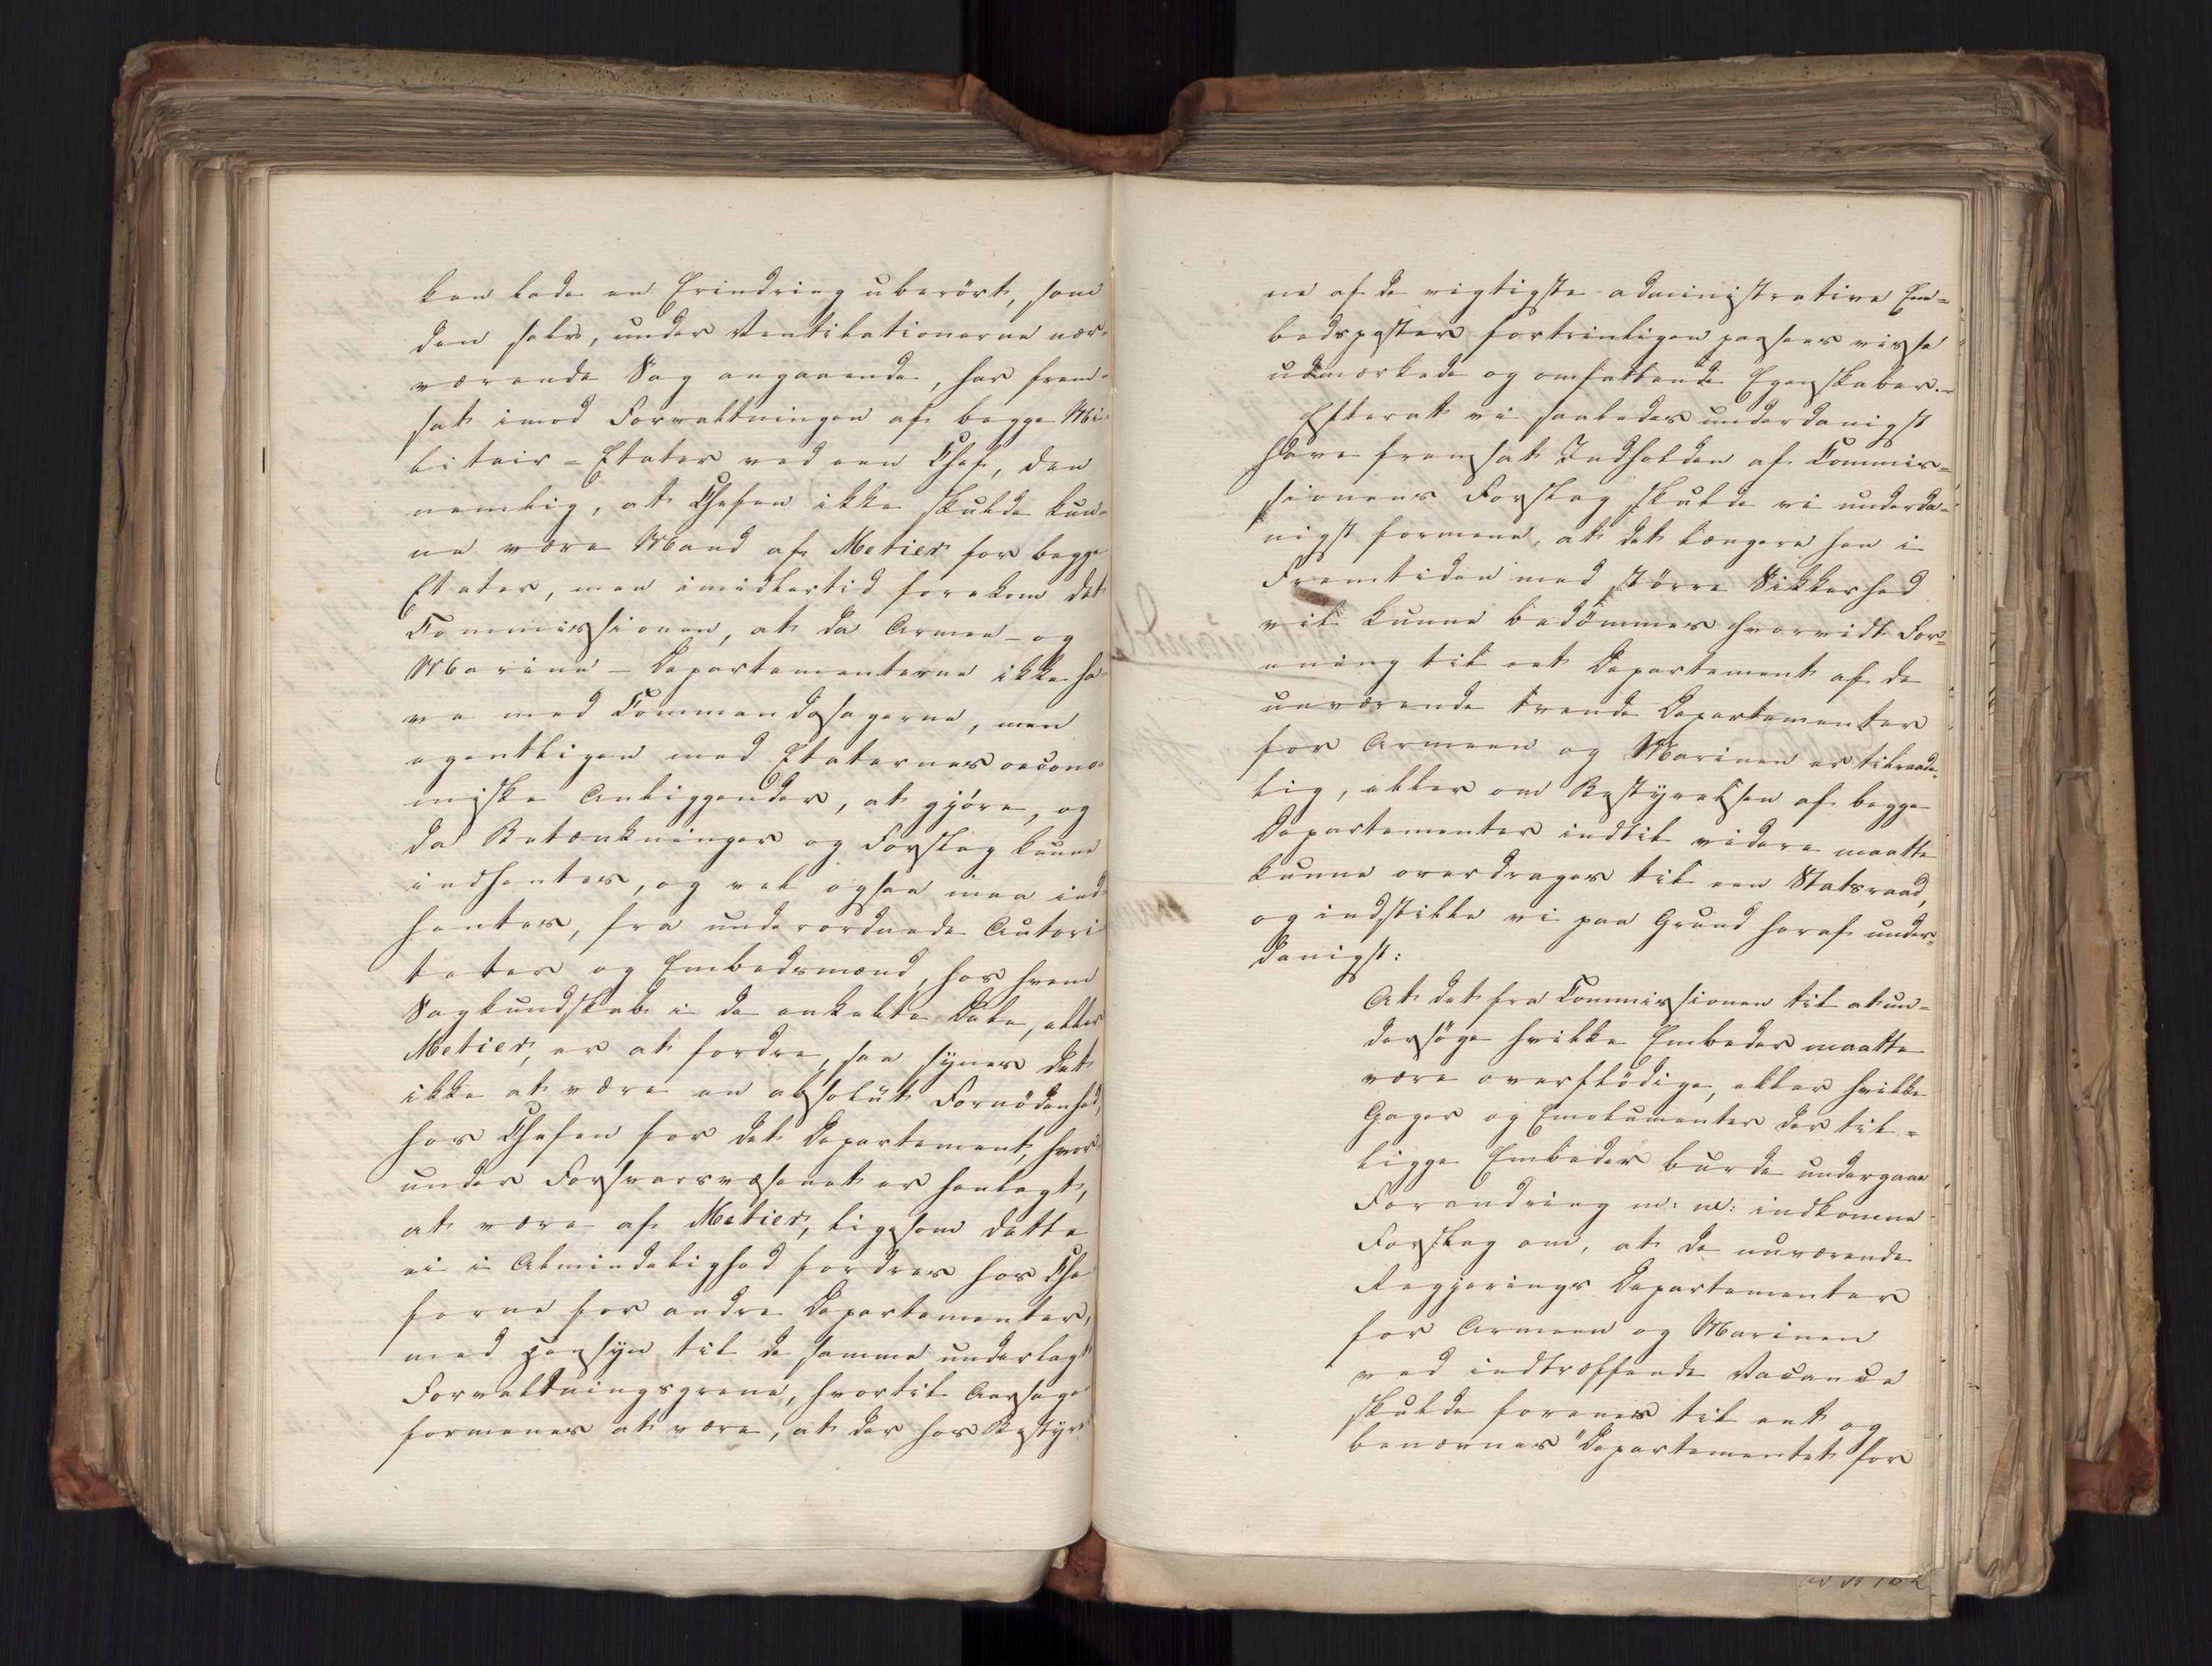 kan lade en Erindring uberört, som
den selv, under Ventilationerne nær-
værende Sag angaaende, har frem-
sat imod Forvaltningen af begge Mi-
litair-Etater ved een Chef, den
nemlig, at Chefen ikke skulde kun-
ne være Mand af Metier for begge
Etater, men imidlertid forekom det
Commissionen, at da Armee- og
Marine-Departementerne ikke ha-
ve med Commandosagerne, men
egentligen med Etaternes oecono-
miske Anliggender, at gjöre, og
da Betænkninger og Forslag kunne
indhentes, og vel ogsaa maa ind-
hentes, fra underordnede Autori-
teter og Embedsmænd, hos hvem
Sagkundskab i de enkelte Dele, eller
Metier, er at fordre, saa synes det
ikke at være en absolut Fornödenhed,
hos Chefen for det Departement, hvor-
under Forsvarsvæsenet er henlagt,
at være af Metier, ligesom dette
ei i Almindelighed fordres hos Che-
ferne for andre Departementer,
med Hensyn til de samme underlagte
Forvaltningsgrene, hvortil Aarsagen
formenes at være, at der hos Bestyrer-
ne af de vigtigste administrative Em-
bedsposter fortrinligen passer visse
udmærkede og omfattende Egenskaber.-
Efterat vi saaledes underdanigst
have fremsat Indholden af Commis-
sionens Forslag skulde vi underda-
nigst formene, at det længere hen i
Fremtiden med större Sikkerhed
vil kunne bedömmes hvorvidt For-
ening til eet Departement af de
nuværende tvende Departementer
for Armeen og Marinen er tilraade-
lig, eller om Bestyrelsen af begge
Departementer indtil videre maatte
kunne overdrages til een Statsraad,
og indstille vi paa Grund heraf under-
danigst:
At det fra Commissionen til at un-
dersöge hvilke Embeder maatte
være overflödige, eller hvilke
Gager og Emolumenter der til-
ligge Embeder burde undergaae
Forandring m: m: indkomne
Forslag om, at de nuværende
Regjerings Departementer
for Armeen og Marinen
ved indtræffende Vacance
skulde forenes til eet og
benævnes "Departementet for